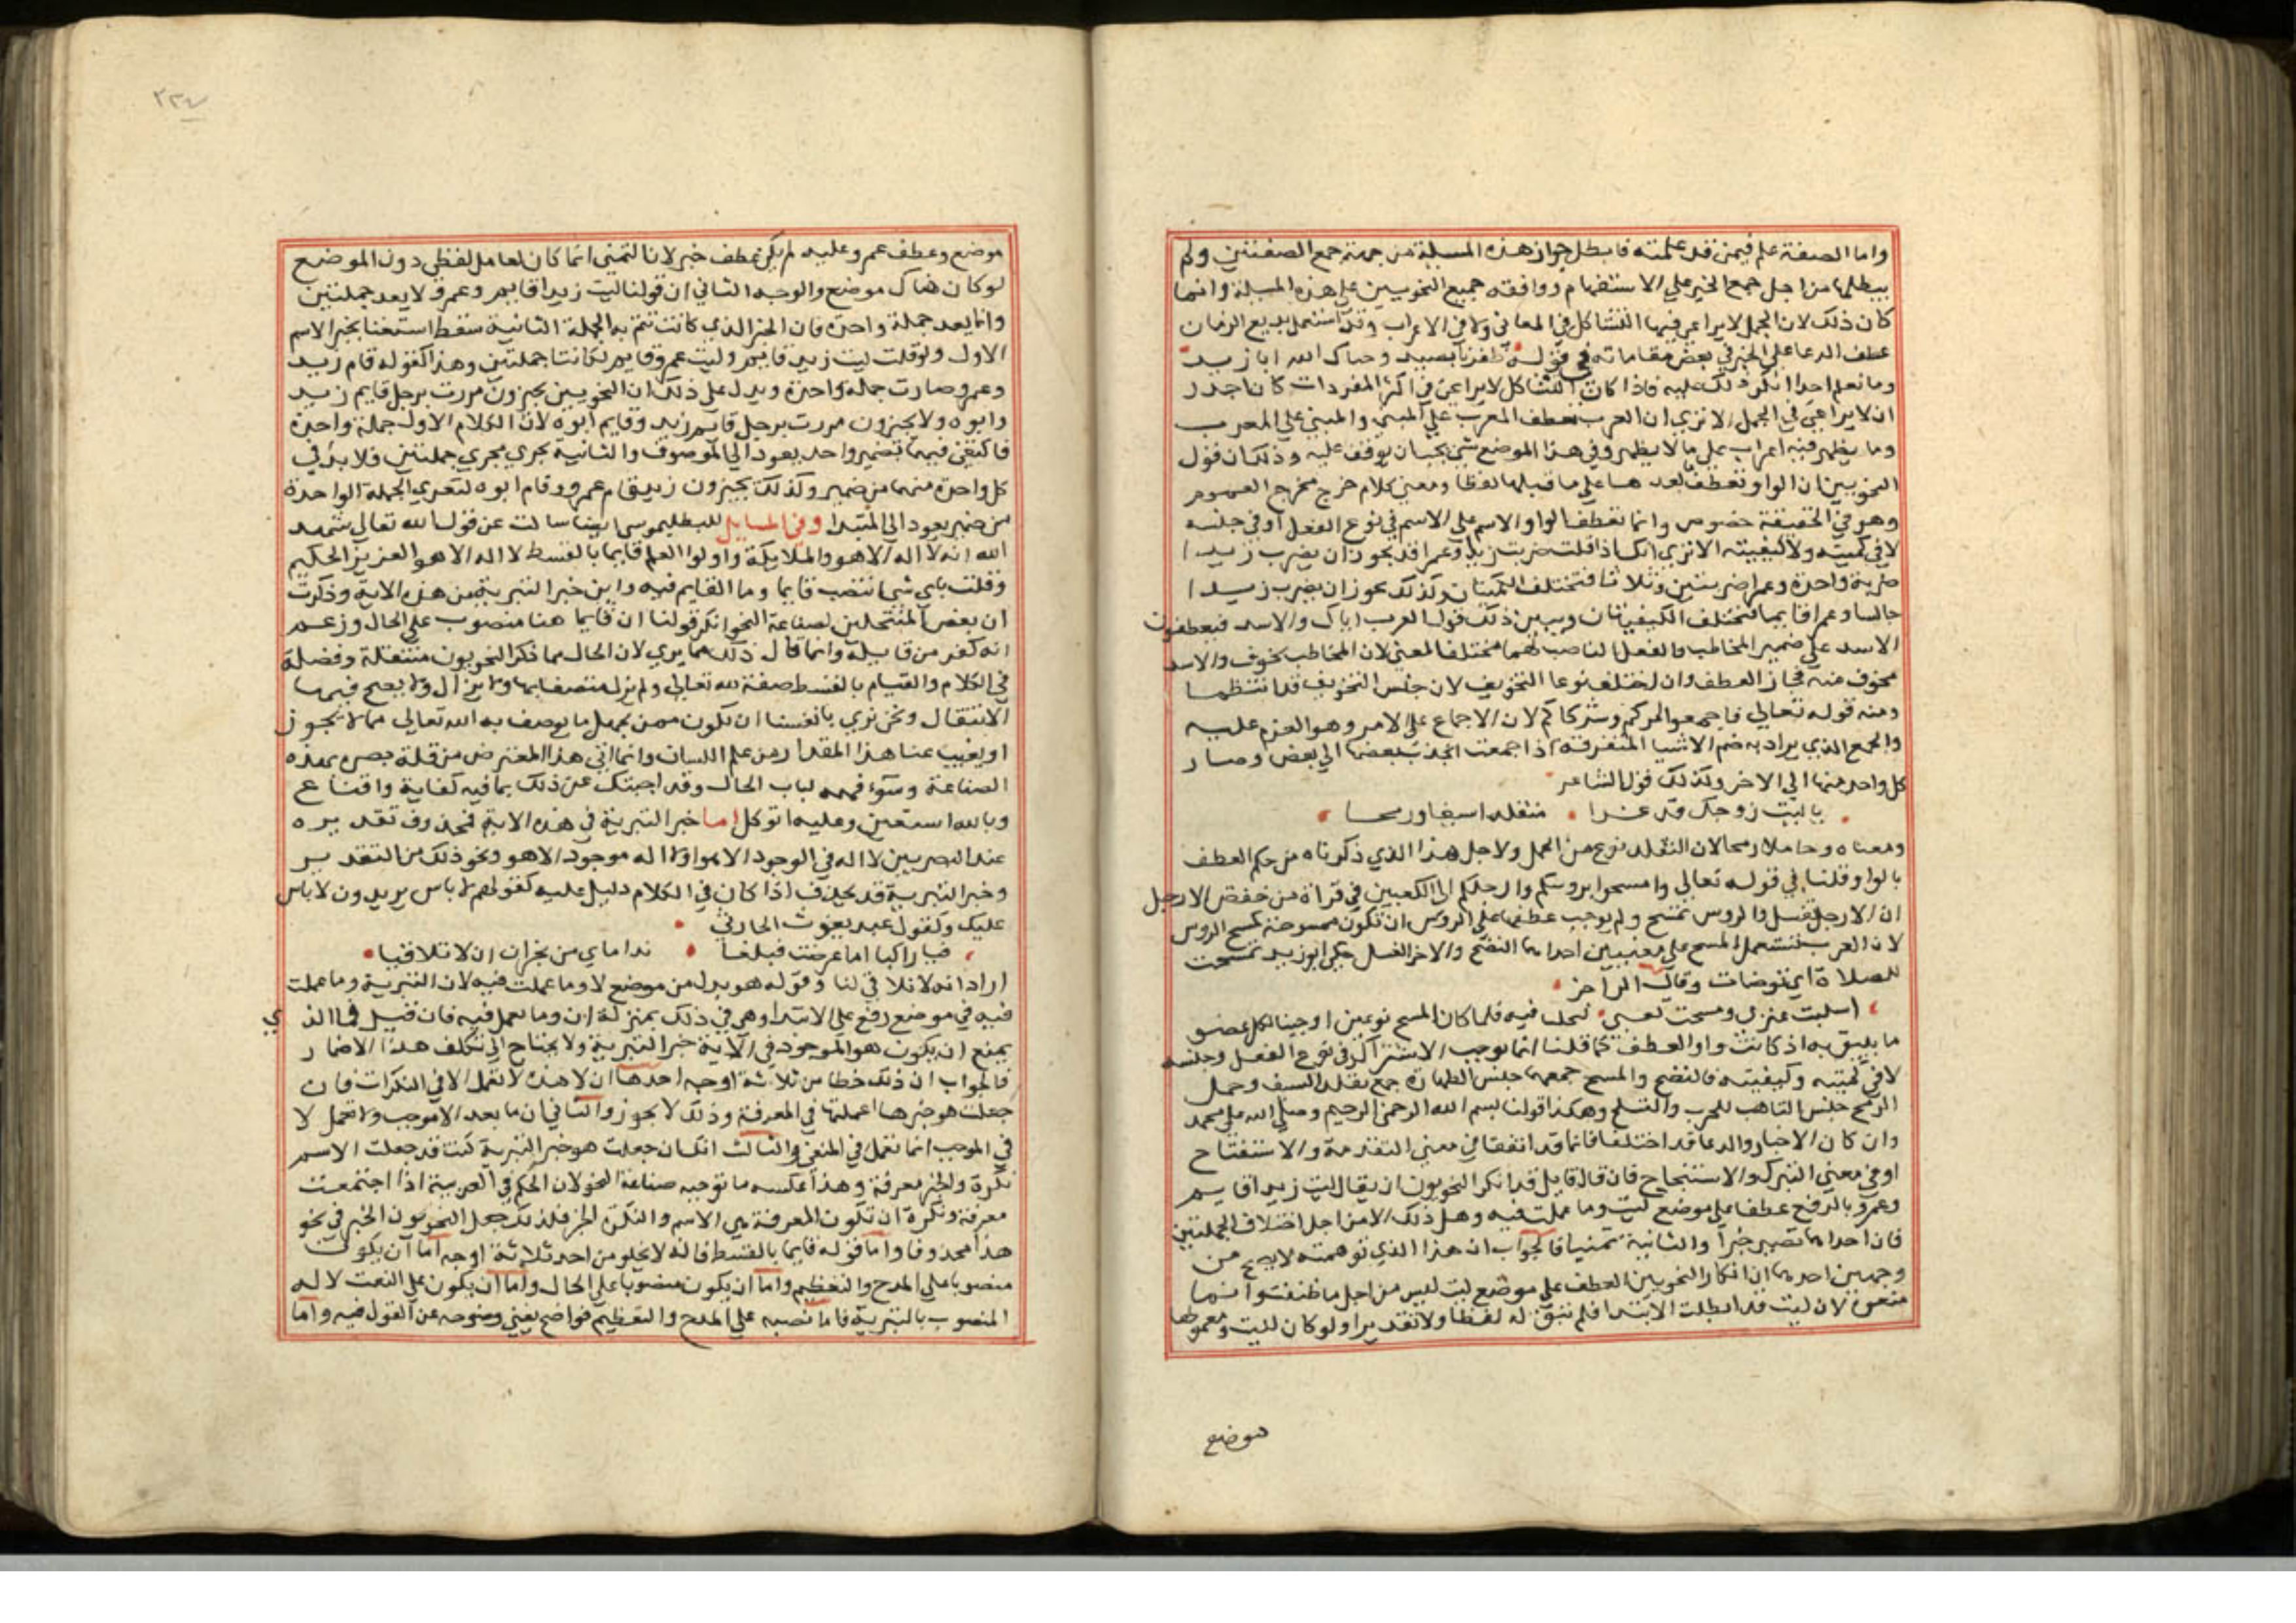 واما الصفة علم فيمن قد علمته فابطل جواز هذه المسيلة من جهة جمع الصفتين ولم
يبطلها من اجل جمع الخبر على الاستفهام ووافقه جميع النحويين على هذه المسيلة وانما
كان ذلك لان الجمل لا يراعى فيها التشاكل في المعاني ولا في الاعراب وقد استعمل بديع الزمان
عطف الدعا على الخبر في بعض مقاماته في قوله ظفرنا بصيد وحياك الله ابا زيد
وما نعلم احدا انكر ذلك عليه فاذا كان التشاكل لا يراعى في اكثر المفردات كان اجدر
ان لا يراعى في الجمل الا تري ان العرب تعطف المعرب على المبني والمبني علي المعرب
وما يظهر فيه اعراب على ما لا يظهر وفي هذا الموضع شي يجب ان يوقف عليه وذلك ان قول
النحويين ان الواو تعطف ما بعدها على ما قبلها لفظا ومعنى كلام خرج مخرج العموم
وهو في الحقيقة خصوص وانما تعطف الواو الاسم على الاسم في نوع الفعل او في جنسه
لا في كميته ولا كيفيته الا تري انك اذا قلت ضربت زيدا وعمرا فقد يجوز ان يضرب زيدا
ضربة واحدة وعمرا ضربتين وثلاثا فتختلف الكميتان وكذلك يجوز ان يضرب زيدا
جالسا وعمرا قايما فتختلف الكيفيتان ويبين ذلك قول العرب اياك والاسد فيعطفون
الاسد على ضمير المخاطب والفعل الناصب لهما مختلف المعنى لان المخاطب مخوف والاسد
مخوف منه فجاز العطف وان اختلف نوعا التخويف لان جنس التخويف قد انتظمهما
ومنه قوله تعالى فاجمعوا امركم وشركاكم لان الاجماع على الامر هو العزم عليه
والجمع الذي يراد به ضم الاشيا المتفرقة اذا جمعت انجذب بعضها الى بعض وصار
كل واحد منها الى الاخر وكذلك قول الشاعر
يا ليت زوجك قد غدا متقلدا سيفا ورمحا
ومعناه وحاملا رمحا لان التقلد نوع من الحمل ولاجل هذا الذي ذكرناه من حكم العطف
بالواو قلنا في قوله تعالى وامسحوا بروسكم وارجلكم الى الكعبين في قراة من خفض الارجل
ان الارجل تغسل والروس تمسح ولم يوجب عطفها على الروس ان تكون ممسوحة كمسح الروس
لان العرب تستعمل المسح على معنيين احدهما النضح والاخر الغسل حكى ابو زيد تمسحت
للصلاة اي توضات وقال الراجز
ما يليق به اذ كانت واو العطف كما قلنا انما توجب الاشتراك في نوع الفعل وجنسه
لا في كميته وكيفيته فالنضح والمسح جمعهما جنس الطهارة كما جمع تقلد السيف وحمل
الرمح جنس التاهب للحرب والتسلح وهكذا قولنا بسم الله الرحمن الرحيم وصلى الله على محمد
وان كان الاخبار والدعا قد اختلفا فانهما قد اتفقا في معنى التقدمة والاستفتاح
او في معنى التبرك والاستنجاح فان قال قايل قد انكر النحويون ان يقال ليت زيدا قايم
وعمرو بالرفع عطفا على موضع ليت وما عملت فيه وهل ذلك الا من اجل اختلاف الجملتين
فان احداهما تصير خبرا والثانية تمنيا فالجواب ان هذا الذي توهمته لا يصح من
وجهين احدهما ان انكار النحويين العطف على موضع ليت ليس من اجل ما ظننت وانما
منعوه لان ليت قد ابطلت الابتدا فلم يبق له لفظا ولا تقديرا ولو كان لليت ومعمولها
موضع
٢٢٤
موضع وعطف عمرو عليه لم يكن عطف خبر لان التمني انما كان لعامل لفظي دون الموضع
لو كان هناك موضع والوجه الثاني ان قولنا ليت زيدا قايم وعمرو لا يعد جملتين
وانما يعد جملة واحدة فان الخبر الذي كانت تتم به الجملة الثانية سقط استغنا بخبر الاسم
الاول ولو قلت ليت زيد قايم وليت عمرو قايم لكانتا جملتين وهذا كقوله قام زيد
وعمرو صارت جملة واحدة ويدل على ذلك ان النحويين يجيزون مررت برجل قايم زيد
وابوه ولا يجيزون مررت برجل قايم زيد وقايم ابوه لان الكلام الاول جملة واحدة
فاكتفى فيها بضمير واحد يعود الي الموصوف والثانية تجري مجري جملتين فلا بد في
كل واحدة منهما من ضمير وكذلك يجيزون زيد قام عمرو وقام ابوه لتعري الجملة الواحدة
من ضمير يعود الى المبتدا وفي المسايل للبطليموسي ايضا سالت عن قول الله تعالى شهد
الله انه لا اله الا هو والملايكة واولوا العلم قايما بالقسط لا اله الا هو العزيز الحكيم
وقلت باي شي انتصب قايما وما القايم فيه واين خبر التبرية من هذه الاية وذكرت
ان بعض المنتحلين لصناعة النحو انكر قولنا ان قايما هنا منصوب على الحال وزعم
انه كفر من قايله وانما قال ذلك فيما يري لان الحال مما ذكر النحويون منتقلة وفضلة
في الكلام والقيام بالقسط صفة لله تعالى ولم يزل متصفا بها ولا يزال ولا يصح فيها
الانتقال ونحن نري بانفسنا ان نكون ممن يجهل ما يوصف به الله تعالى مما لا يجوز
او يغيب عنا هذا المقدار من علم اللسان وانما اتي هذا المعترض من قلة بصره بهذه
الصناعة وسوء فهمه لباب الحال وقد اجبتك عن ذلك بما فيه كفاية واقناع
وبالله استعين وعليه اتوكل اما خبر التبرية في هذه الاية فمحذوف تقديره
عند البصريين لا اله في الوجود الا هو او لا اله موجود الا هو ونحو ذلك من التقدير
وخبر التبرية قد يحذف اذا كان في الكلام دليل عليه كقولهم لا باس يريدون لا باس
عليك وكقول عبد يغوث الحارثي
فيا راكبا اما عرضت فبلغا نداماي من نجران ان لا تلاقيا
اراد انه لا تلاقي لنا وقوله هو بدل من موضع لا وما عملت فيه لان التبرية وما عملت
فيه في موضع رفع على الابتدا وهي في ذلك بمنزلة ان وما تعمل فيه فان قيل فما الذي
يمنع ان يكون هو الموجود في الاية خبر التبرية ولا يحتاج الى تكلف هذا الاضمار
فالجواب ان ذلك خطا من ثلاثة اوجه احدها ان لا هذه لا تعمل الا في النكرات فان
جعلت هو خبرها اعملتها في المعرفة وذلك لا يجوز والثاني ان ما بعد الا موجب ولا تعمل لا
في الموجب انما تعمل في المنفي والثالث انك ان جعلت هو خبر التبرية كنت قد جعلت الاسم
نكرة والخبر معرفة وهذا عكس ما توجبه صناعة النحو لان الحكم في العربية اذا اجتمعت
معرفة ونكرة ان تكون المعرفة هي الاسم والنكرة الخبر فلذلك جعل النحويون الخبر في نحو
هذا محذوفا واما قوله قايما بالقسط فانه لا يخلو من احد ثلاثة اوجه اما ان يكون
منصوبا على المدح والتعظيم واما ان يكون منصوبا على الحال واما ان يكون على النعت لاله
المنصوب بالتبرية فاما نصبه على المدح والتعظيم فواضح يغني وضوحه عن القول فيه واما